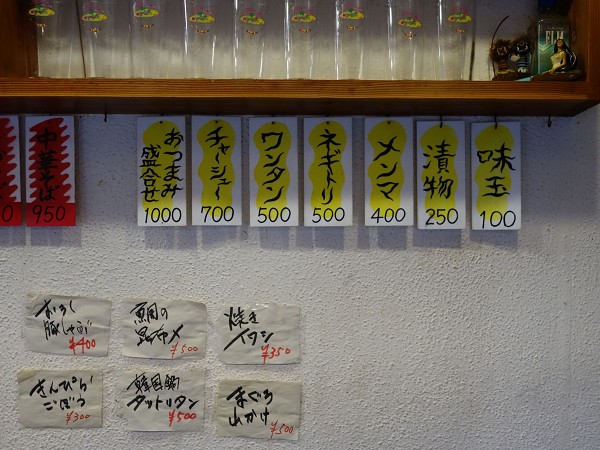 中華そば
950
おつまみ
盛合せ
1000
チャーシュー
700
ワンタン
500
ネギトリ
500
メンマ
400
漬物
250
味玉
100
おろし
豚しゃぶ
¥400
鯛の
昆布〆
¥500
焼き
イワシ
¥350
きんぴら
ごぼう
¥300
韓国鍋
タットリタン
¥500
まぐろ
山かけ
¥500